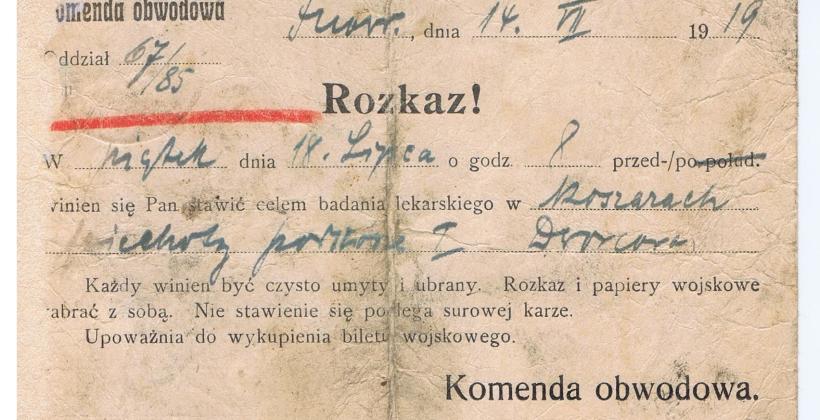 omenda obwodowa
Inowr., dnia 14. VII 1919
ddział 67/
/85
Rozkaz!
W piątek dnia 18. Lipca o godz. 8 przed-/po-połud.
winien się Pan stawić celem badania lekarskiego w koszarach
piechoty Dworcowa
Każdy winien być czysto umyty i ubrany. Rozkaz i papiery wojskowe
abrać z sobą. Nie stawienie się podlega surowej karze.
Upoważnia do wykupienia biletu wojskowego.
Komenda obwodowa.